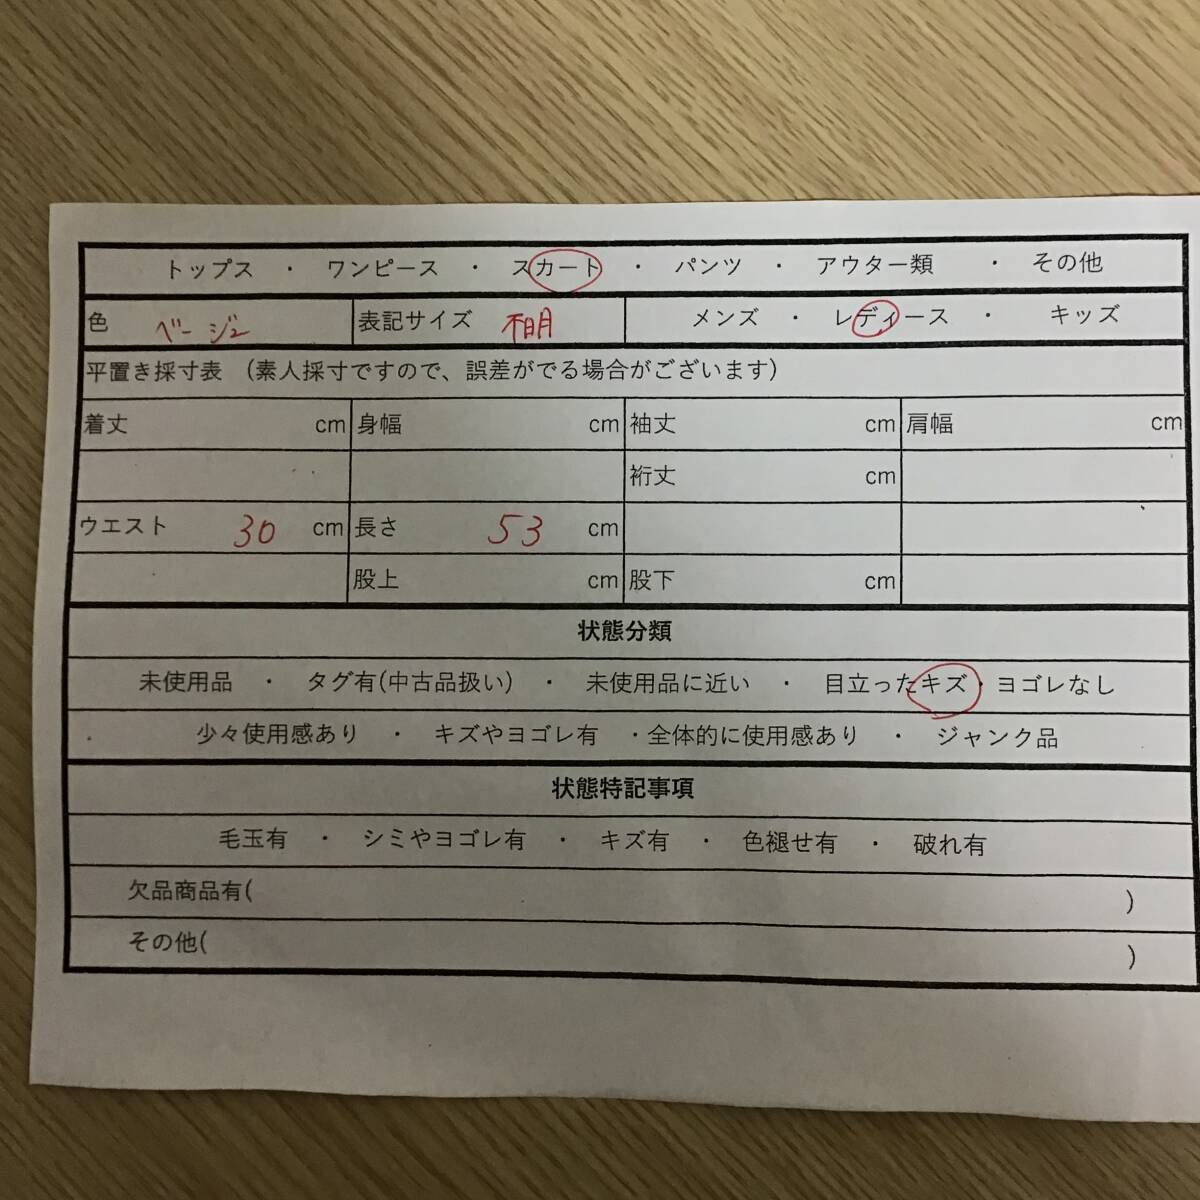 トップス ・ ワンピース ・ スカート ・ パンツ ・ アウター類 ・ その他
色 ベージュ 表記サイズ 不明 メンズ ・ レディース ・ キッズ
平置き採寸表 (素人採寸ですので、誤差がでる場合がございます)
着丈 cm 身幅 cm 袖丈 cm 肩幅 cm
裄丈 cm
ウエスト 30 cm 長さ 53 cm
股上 cm 股下 cm
状態分類
未使用品 ・ タグ有(中古品扱い) ・ 未使用品に近い ・ 目立ったキズ・ヨゴレなし
少々使用感あり ・ キズやヨゴレ有 ・全体的に使用感あり ・ ジャンク品
状態特記事項
毛玉有 ・ シミやヨゴレ有 ・ キズ有 ・ 色褪せ有 ・ 破れ有
欠品商品有( )
その他( )